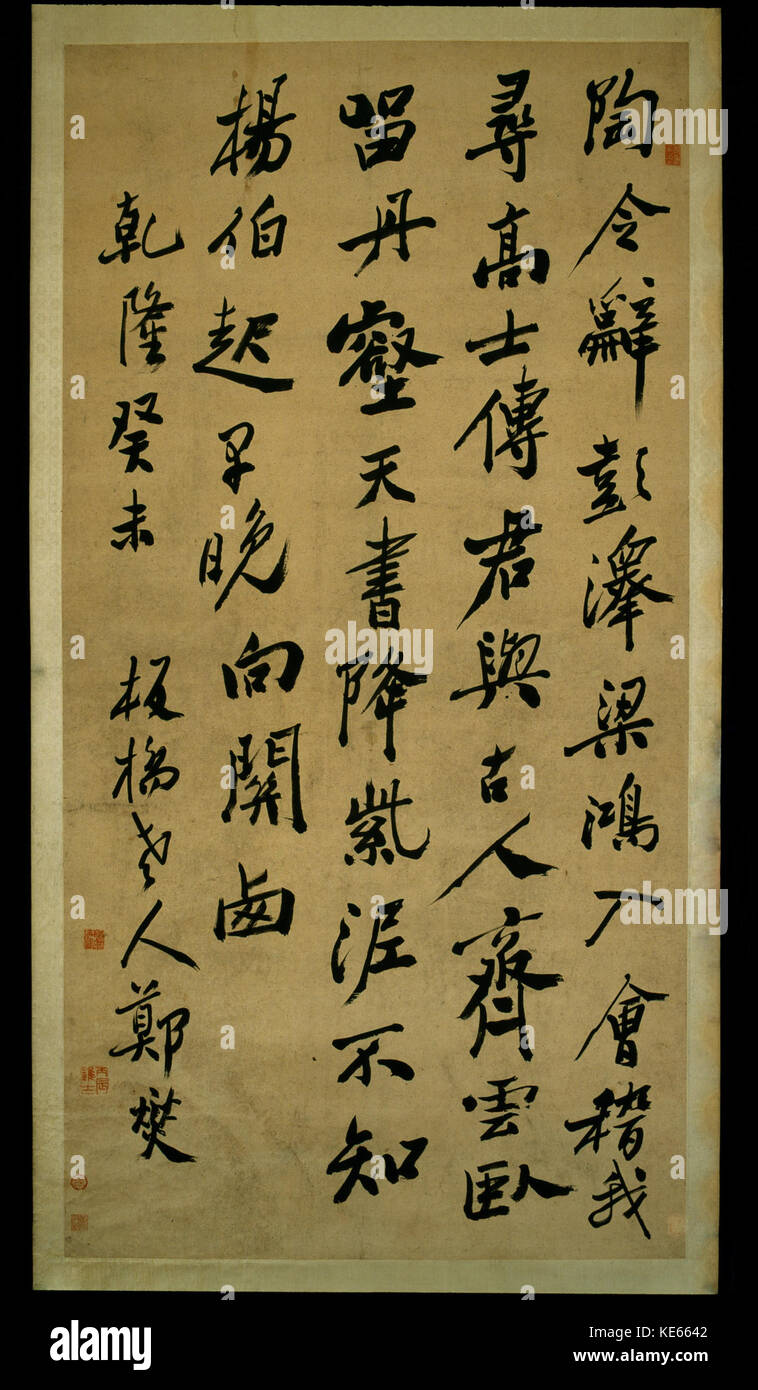 陶令辭彭澤梁鴻入會稽我
尋高士傳君與古人齊雲臥
留丹壑天書降紫泥不知
楊伯起早晚向關西
乾隆癸未 板橋老人鄭燮
alamy
alamy
alamy
alamy
alamy
Image ID: KE6642
www.alamy.com